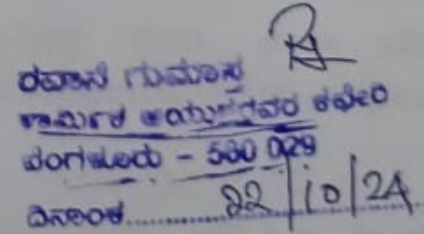 ರವಾನೆ ಗುಮಾಸ್ತ
ಕಾರ್ಮಿಕ ಆಯುಕ್ತರವರ ಕಛೇರಿ
ಬೆಂಗಳೂರು - 560 029
ದಿನಾಂಕ.................. 22/10/24